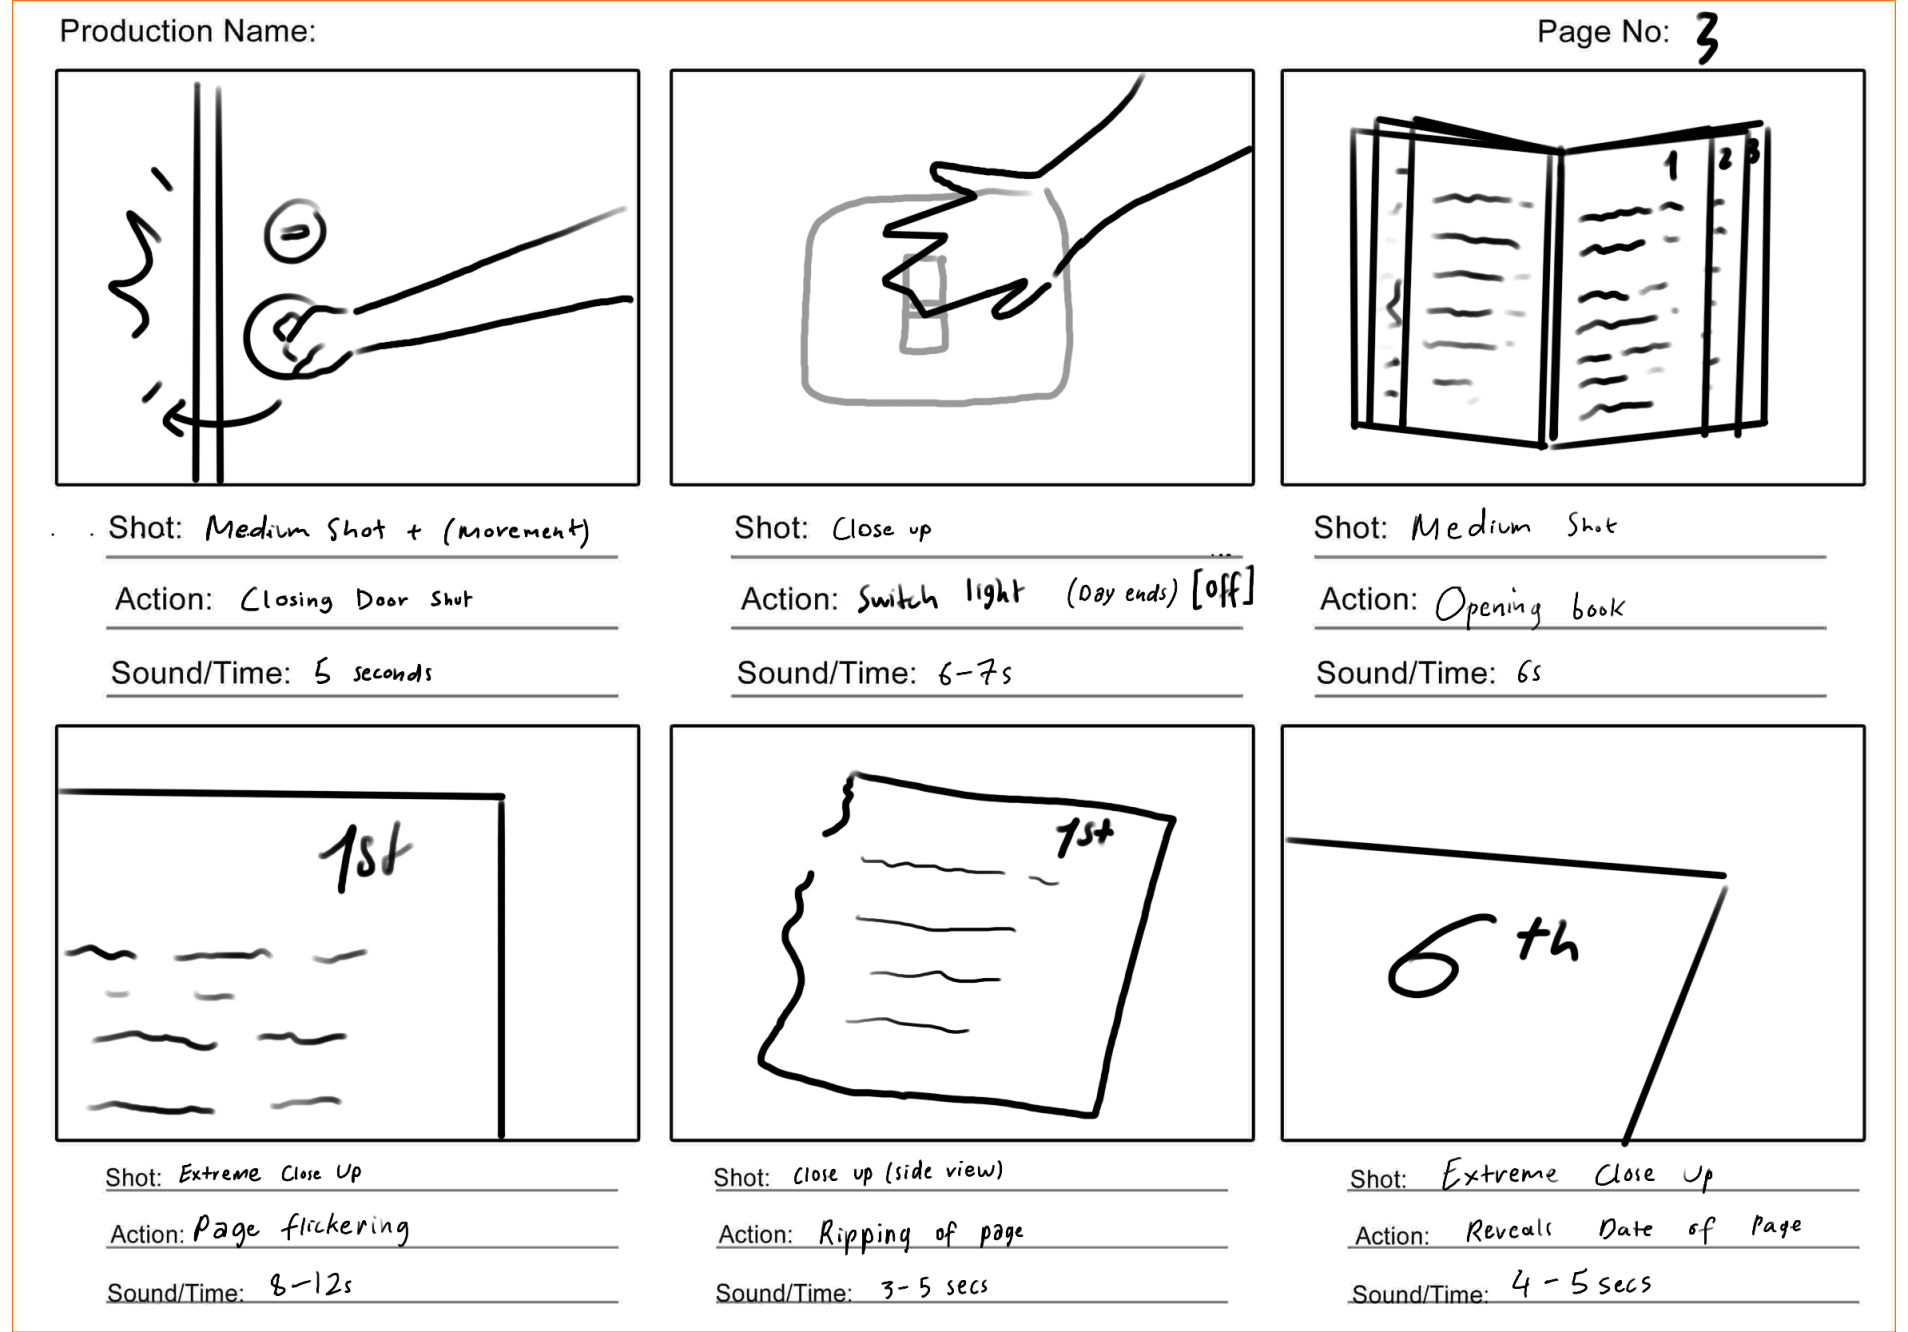 Production Name:
Page No: 3
1 2 3
Shot: Medium Shot + (movement)
Action: Closing Door Shut
Sound/Time: 5 seconds
Shot: Close up
Action: Switch light (Day ends) [off]
Sound/Time: 6-7s
Shot: Medium Shot
Action: Opening book
Sound/Time: 6s
1st
1st
6th
Shot: Extreme Close Up
Action: Page flickering
Sound/Time: 8-12s
Shot: Close up (side view)
Action: Ripping of page
Sound/Time: 3-5 secs
Shot: Extreme Close Up
Action: Reveals Date of Page
Sound/Time: 4-5 secs